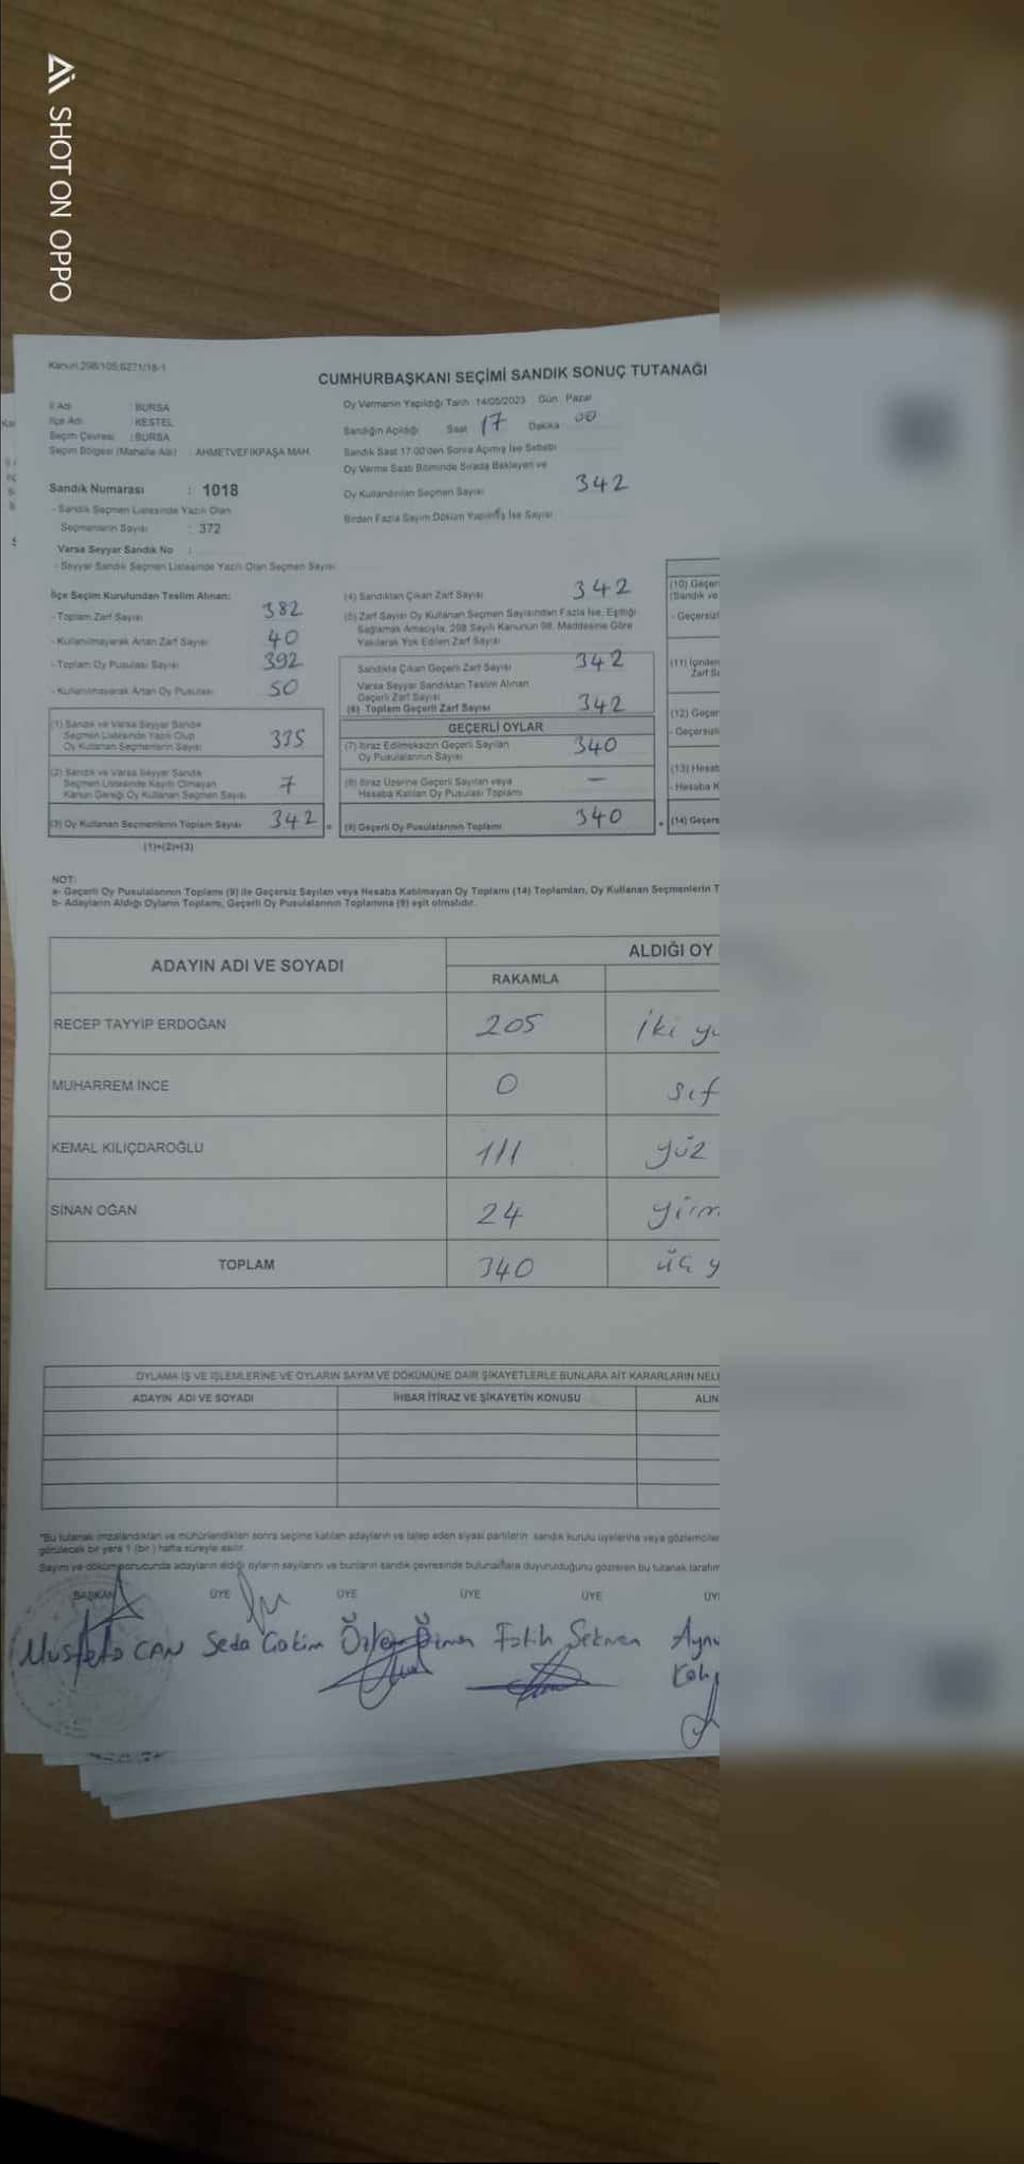 SHOT ON OPPO
Kanun:298/105;6271/18-1
CUMHURBAŞKANI SEÇİMİ SANDIK SONUÇ TUTANAĞI
İl Adı : BURSA
İlçe Adı : KESTEL
Seçim Çevresi : BURSA
Seçim Bölgesi (Mahalle Adı) : AHMETVEFİKPAŞA MAH.
Sandık Numarası : 1018
- Sandık Seçmen Listesinde Yazılı Olan
Seçmenlerin Sayısı : 372
Varsa Seyyar Sandık No :
- Seyyar Sandık Seçmen Listesinde Yazılı Olan Seçmen Sayısı
Oy Vermenin Yapıldığı Tarih :14/05/2023 Gün: Pazar
Sandığın Açıldığı Saat 17 Dakika 00
Sandık Saat 17:00'den Sonra Açılmış İse Sebebi
Oy Verme Saati Bitiminde Sırada Bekleyen ve
Oy Kullandırılan Seçmen Sayısı 342
Birden Fazla Sayım Döküm Yapılmış İse Sayısı
İlçe Seçim Kurulundan Teslim Alınan:
- Toplam Zarf Sayısı 382
- Kullanılmayarak Artan Zarf Sayısı 40
- Toplam Oy Pusulası Sayısı 392
- Kullanılmayarak Artan Oy Pusulası 50
(1) Sandık ve Varsa Seyyar Sandık
Seçmen Listesinde Yazılı Olup
Oy Kullanan Seçmenlerin Sayısı 335
(2) Sandık ve Varsa Seyyar Sandık
Seçmen Listesinde Kayıtlı Olmayan
Kanun Gereği Oy Kullanan Seçmen Sayısı 7
(3) Oy Kullanan Seçmenlerin Toplam Sayısı 342 =
(1)+(2)=(3)
(4) Sandıktan Çıkan Zarf Sayısı 342
(5) Zarf Sayısı Oy Kullanan Seçmen Sayısından Fazla İse, Eşitliği
Sağlamak Amacıyla, 298 Sayılı Kanunun 98. Maddesine Göre
Yakılarak Yok Edilen Zarf Sayısı
Sandıkta Çıkan Geçerli Zarf Sayısı 342
Varsa Seyyar Sandıktan Teslim Alınan
Geçerli Zarf Sayısı
(6) Toplam Geçerli Zarf Sayısı 342
GEÇERLİ OYLAR
(7) İtiraz Edilmeksizin Geçerli Sayılan
Oy Pusulalarının Sayısı 340
(8) İtiraz Üzerine Geçerli Sayılan veya
Hesaba Katılan Oy Pusulası Toplamı —
(9) Geçerli Oy Pusulalarının Toplamı 340 +
(10) Geçer
(Sandık ve
- Geçersiz
(11) İçinden
Zarf S
(12) Geçer
- Geçersi
(13) Hesab
- Hesaba K
(14) Geçers
NOT:
a- Geçerli Oy Pusulalarının Toplamı (9) ile Geçersiz Sayılan veya Hesaba Katılmayan Oy Toplamı (14) Toplamları, Oy Kullanan Seçmenlerin T
b- Adayların Aldığı Oyların Toplamı, Geçerli Oy Pusulalarının Toplamına (9) eşit olmalıdır.
ADAYIN ADI VE SOYADI
ALDIĞI OY
RAKAMLA
RECEP TAYYİP ERDOĞAN 205 iki yü
MUHARREM İNCE 0 sıf
KEMAL KILIÇDAROĞLU 111 yüz
SİNAN OĞAN 24 yirm
TOPLAM 340 üç y
OYLAMA İŞ VE İŞLEMLERİNE VE OYLARIN SAYIM VE DÖKÜMÜNE DAİR ŞİKAYETLERLE BUNLARA AİT KARARLARIN NELE
ADAYIN ADI VE SOYADI İHBAR İTİRAZ VE ŞİKAYETİN KONUSU ALIN
*Bu tutanak imzalandıktan ve mühürlendikten sonra seçime katılan adayların ve talep eden siyasi partilerin sandık kurulu üyelerine veya gözlemciler
görülecek bir yere 1 (bir) hafta süreyle asılır.
Sayım ve döküm sonucunda adayların aldığı oyların sayılarını ve bunların sandık çevresinde bulunanlara duyurulduğunu gösteren bu tutanak tarafım
BAŞKAN ÜYE ÜYE ÜYE ÜYE ÜYE
Mustafa CAN Seda Fatih